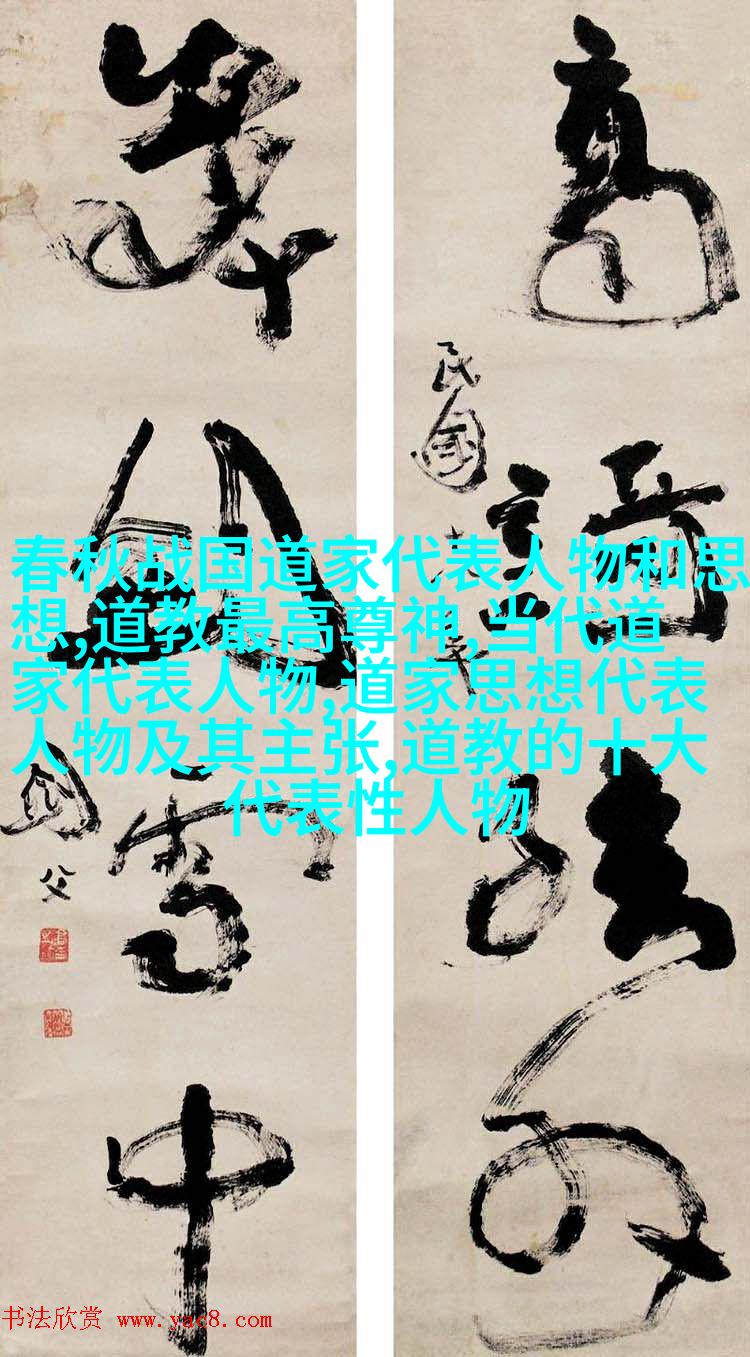 高
語
民國
雪
中
劍父
春秋战国道家代表人物和思
想,道教最高尊神,当代道
家代表人物,道家思想代表
人物及其主张,道教的十大
代表性人物
书法欣赏 www.yac8.com